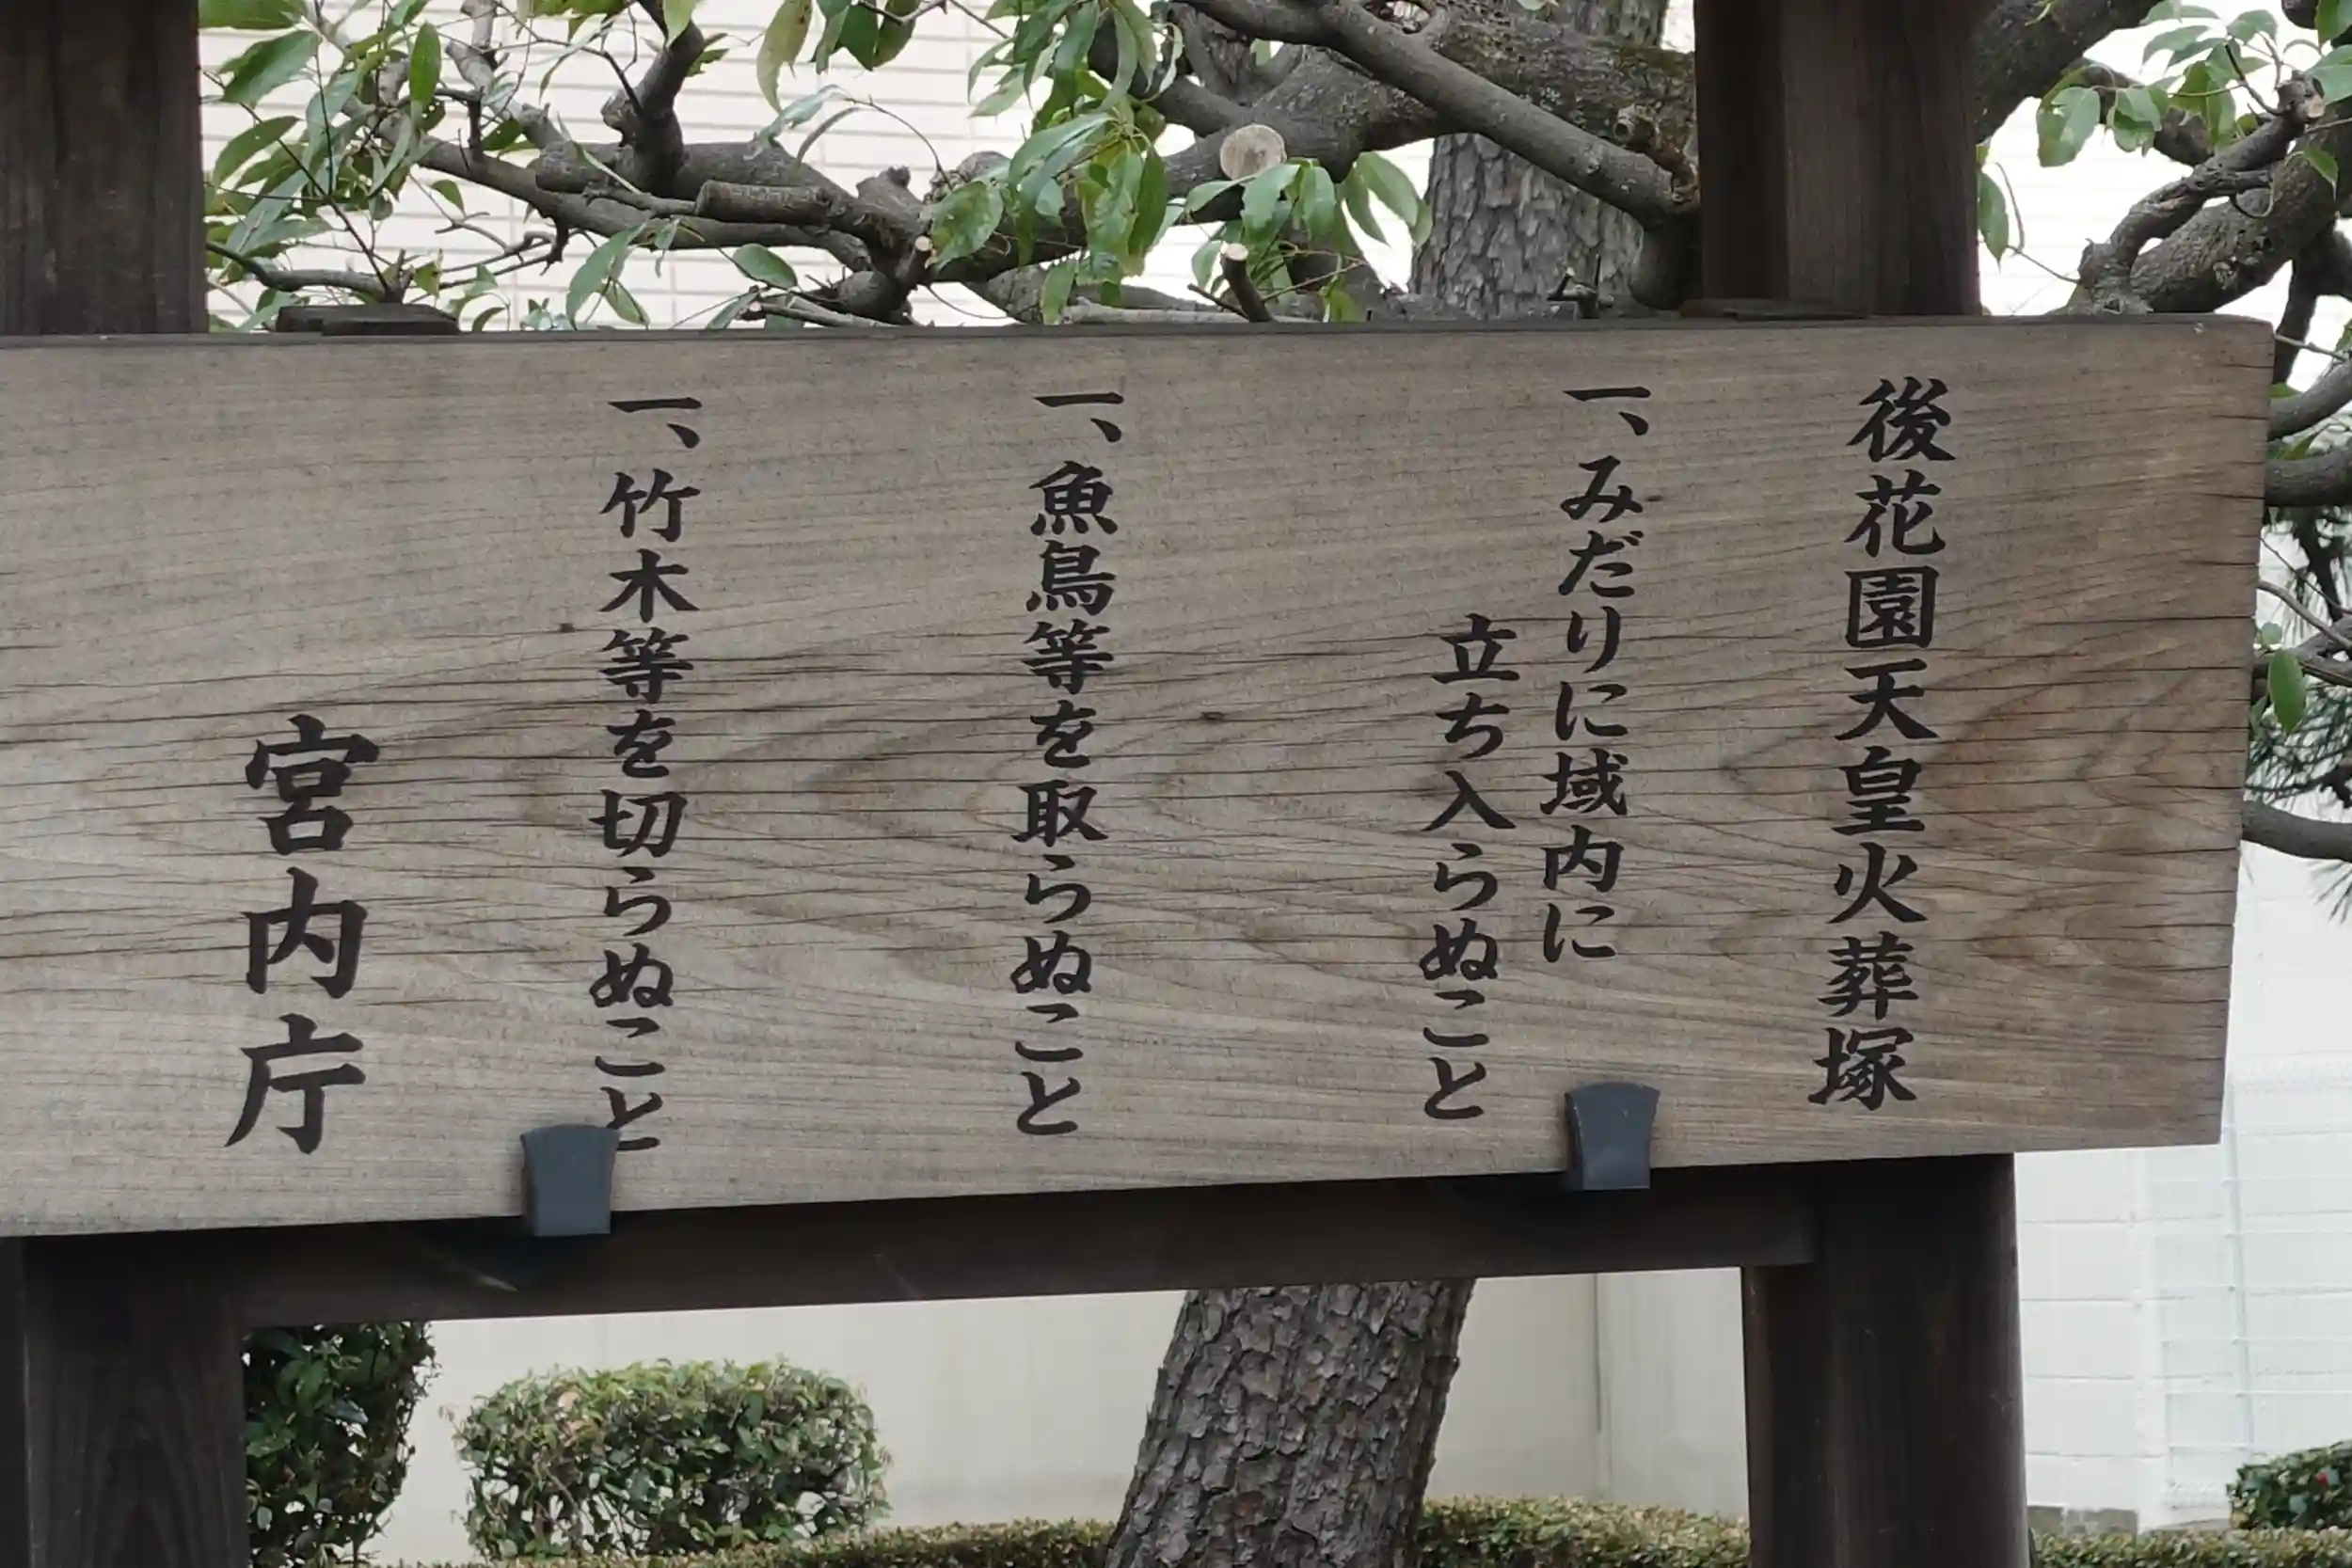 後花園天皇火葬塚
一、みだりに域内に
立ち入らぬこと
一、魚鳥等を取らぬこと
一、竹木等を切らぬこと
宮内庁